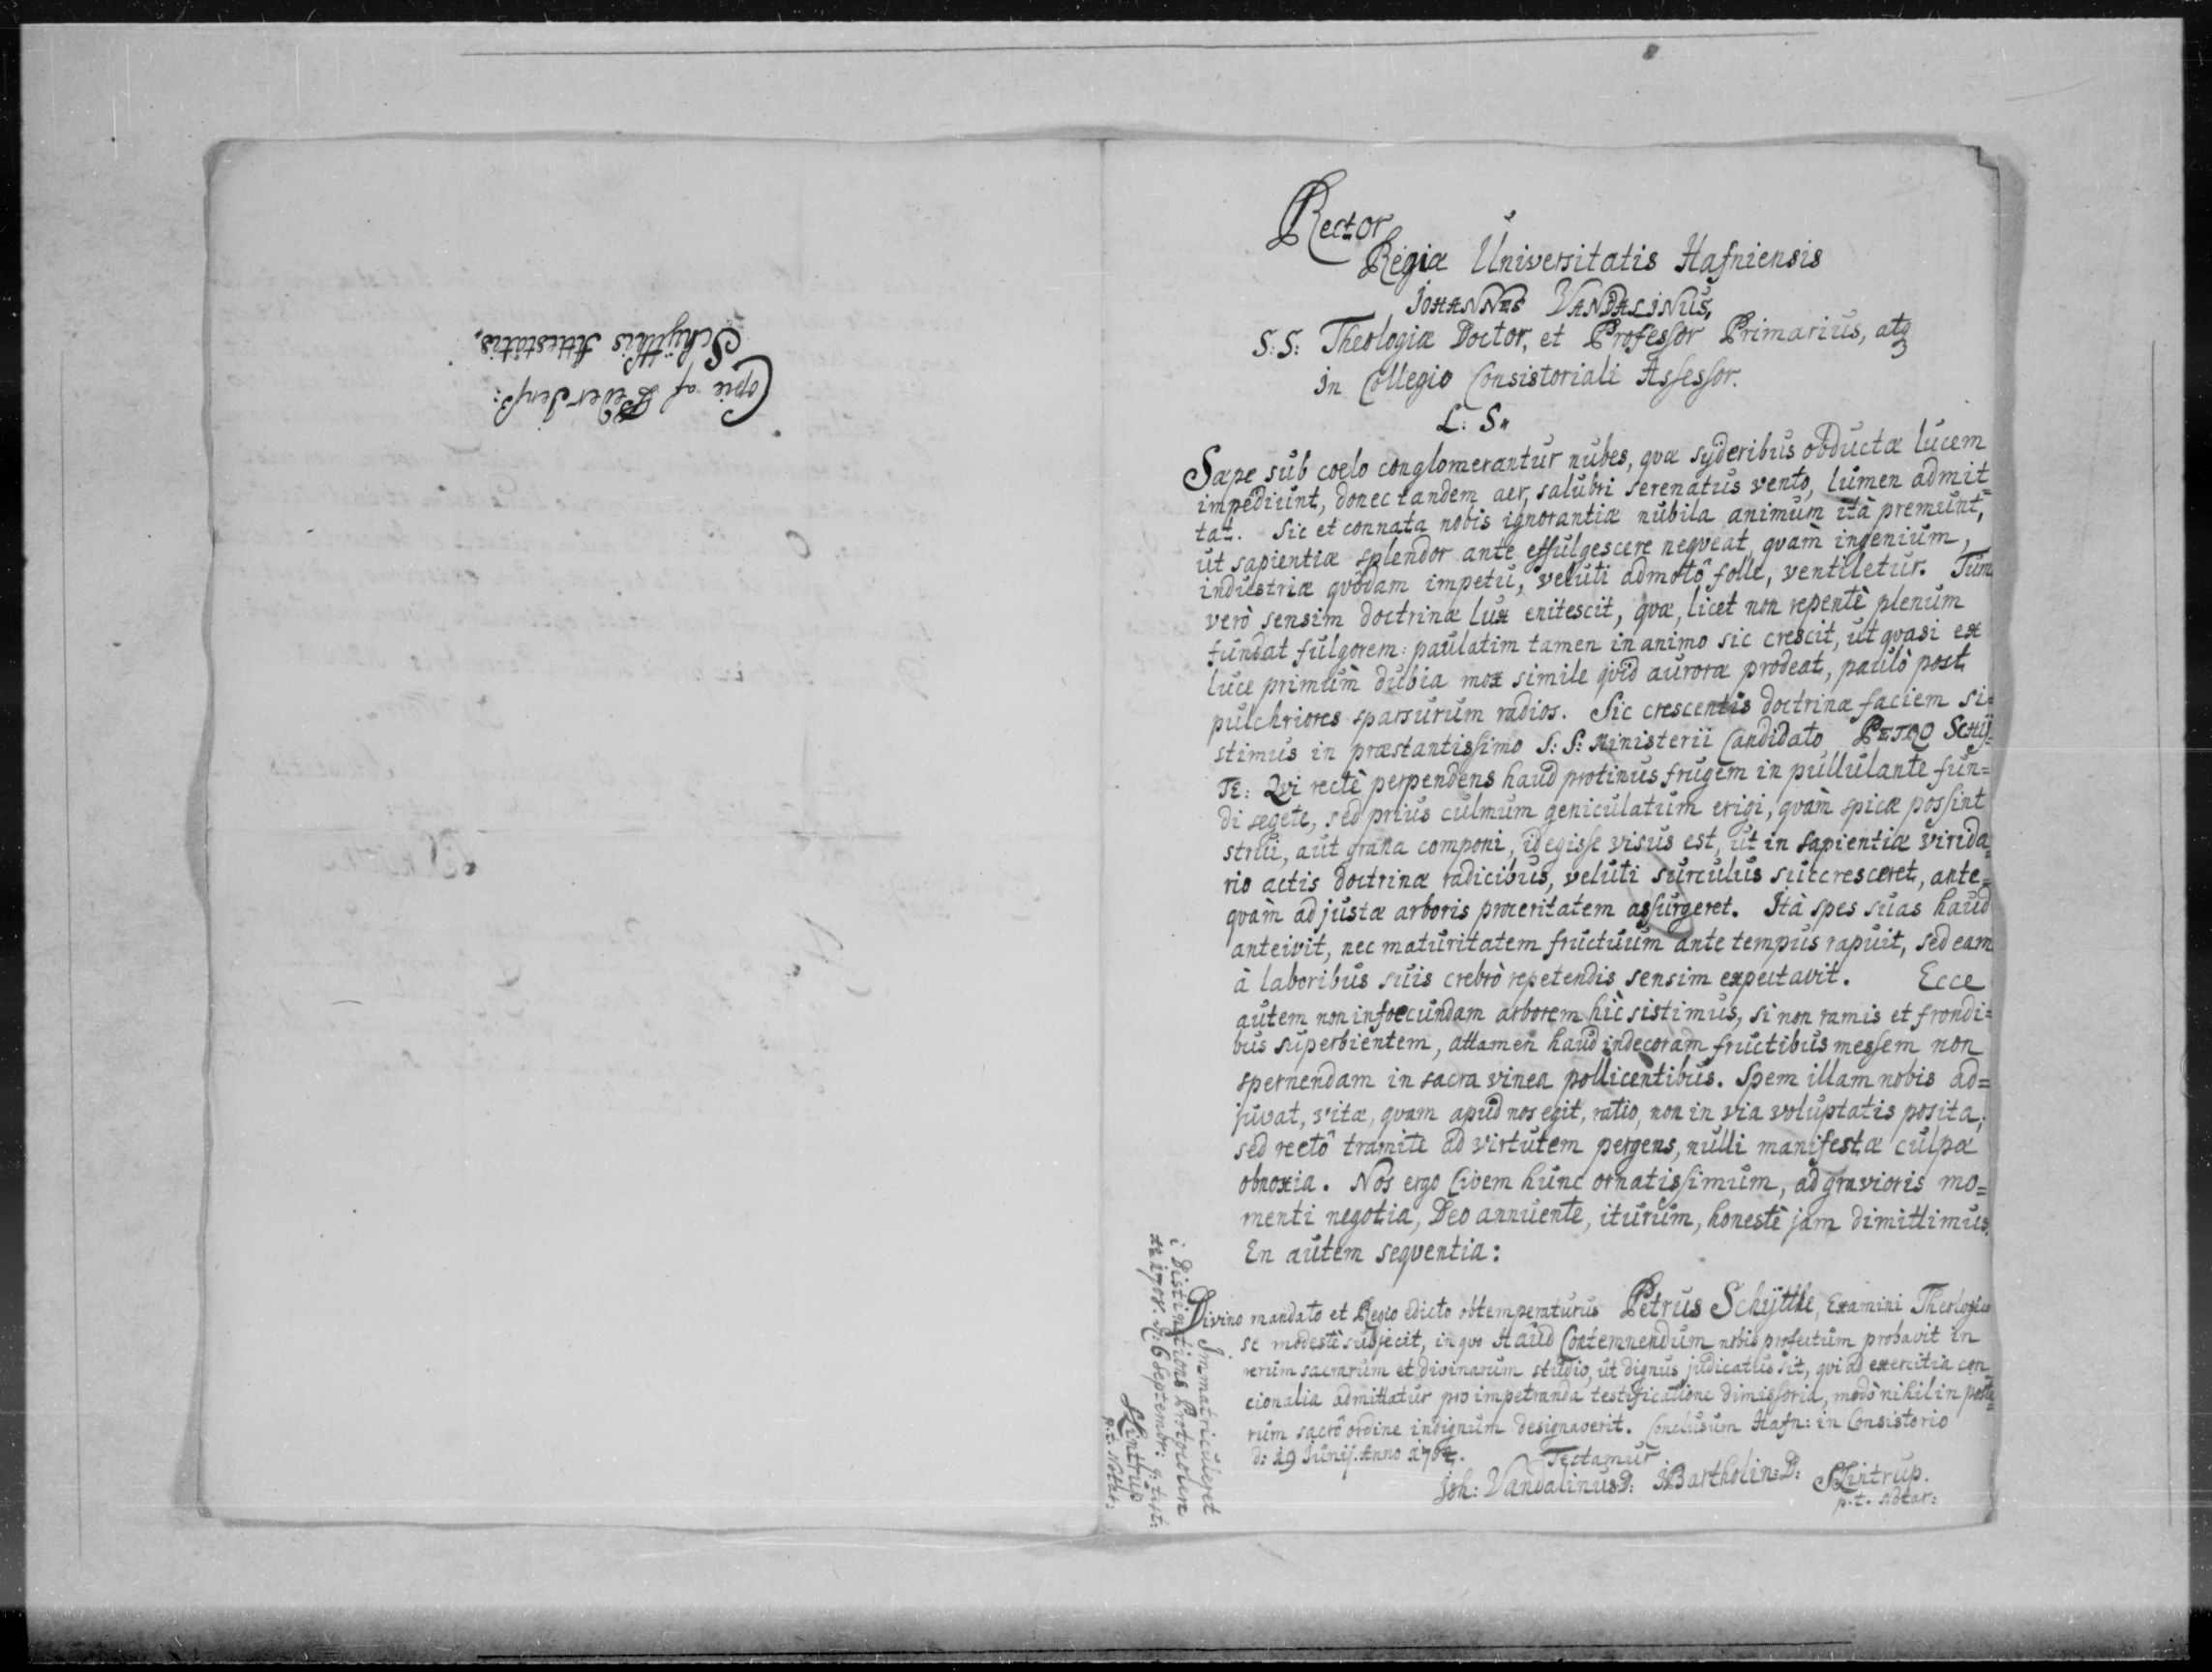 Copie af Peder Jenß:
Schÿtthis Attestatis.
Rector
Regiæ Universitatis Hafniensis
JOHANNES VANDALINUS,
S: S: Theologiæ Doctor, et Professor Primarius, atq3
in Collegio Consistoriali Assessor.
L: S.
Sæpe sub coelo conglomerantur nubes, qvæ syderibus obductæ lucem
impediunt, donec tandem aer, salubri serenatus vento, lumen admit=
tat. Sic et connata nobis ignorantiæ nubila animum ità premunt,
ut sapientiæ splendor ante effulgescere neqveat, qvàm ingenium,
industriæ qvôdam impetu, veluti admotô folle, ventiletur. Tum
verò sensim doctrinæ lux enitescit, qvæ, licet non repentè plenum
fundat fulgorem: paulatim tamen in animo sic crescit, ut qvasi ex
luce primùm dubia mox simile qvid auroræ prodeat, paulò post
pulchriores sparsurum radios. Sic crescentis doctrinæ faciem si=
stimus in præstantissimo S: S: Ministerii Candidato PETRO SCHÿ=
TE: Qvi rectè perpendens haud protinus frugem in pullulante fun=
di segete, sed prius culmum geniculatum erigi, qvàm spicæ possint
strui, aut grana componi, id egisse visus est, ut in sapientiæ virida=
rio actis doctrinæ radicibus, veluti surculus succresceret, ante=
qvàm ad justæ arboris proceritatem assurgeret. Ità spes suas haud
anteivit, nec maturitatem fructuum ante tempus rapuit, sed eam
à laboribus suis crebrò repetendis sensim expectavit. Ecce
autem non infoecundam arborem hìc sistimus, si non ramis et frondi=
bus superbientem, attamen haud indecoram fructibus messem non
spernendam in sacra vinea pollicentibus. Spem illam nobis ad=
juvat, vitæ, qvam apud nos egit, ratio, non in via voluptatis posita,
sed rectô tramite ad virtutem pergens, nulli manifestæ culpæ
obnoxia. Nos ergo Civem hunc ornatissimum, ad gravioris mo=
menti negotia, Deo annuente, iturum, honestè jam dimittimus.
En autem seqventia:
Divino mandato et Regio edicto obtemperaturus Petrus Schÿtthe, Examini Theologico
se modestè subjecit, in qvo Haud Contemnendum nobis profectum probavit in
rerum sacrarum et divinarum studio, ut dignus judicatus sit, qvi ad exercitia con
cionalia admittatur pro impetranda testificatione dimissoria, modò nihil in poste=
rum sacrô ordine indignum designaverit. Conclusum Hafn: in Consistorio
d: 19 Junij. Anno 1704. Testamur
Joh: Vandalinus D: HBartholin: D: SLintrup.
p. t. Notar:
Immatriculeret
i Distinctions Protocollen
Ao 1708. d: 6 Septembr: q: test:
SLintrup
p. t. Notar: